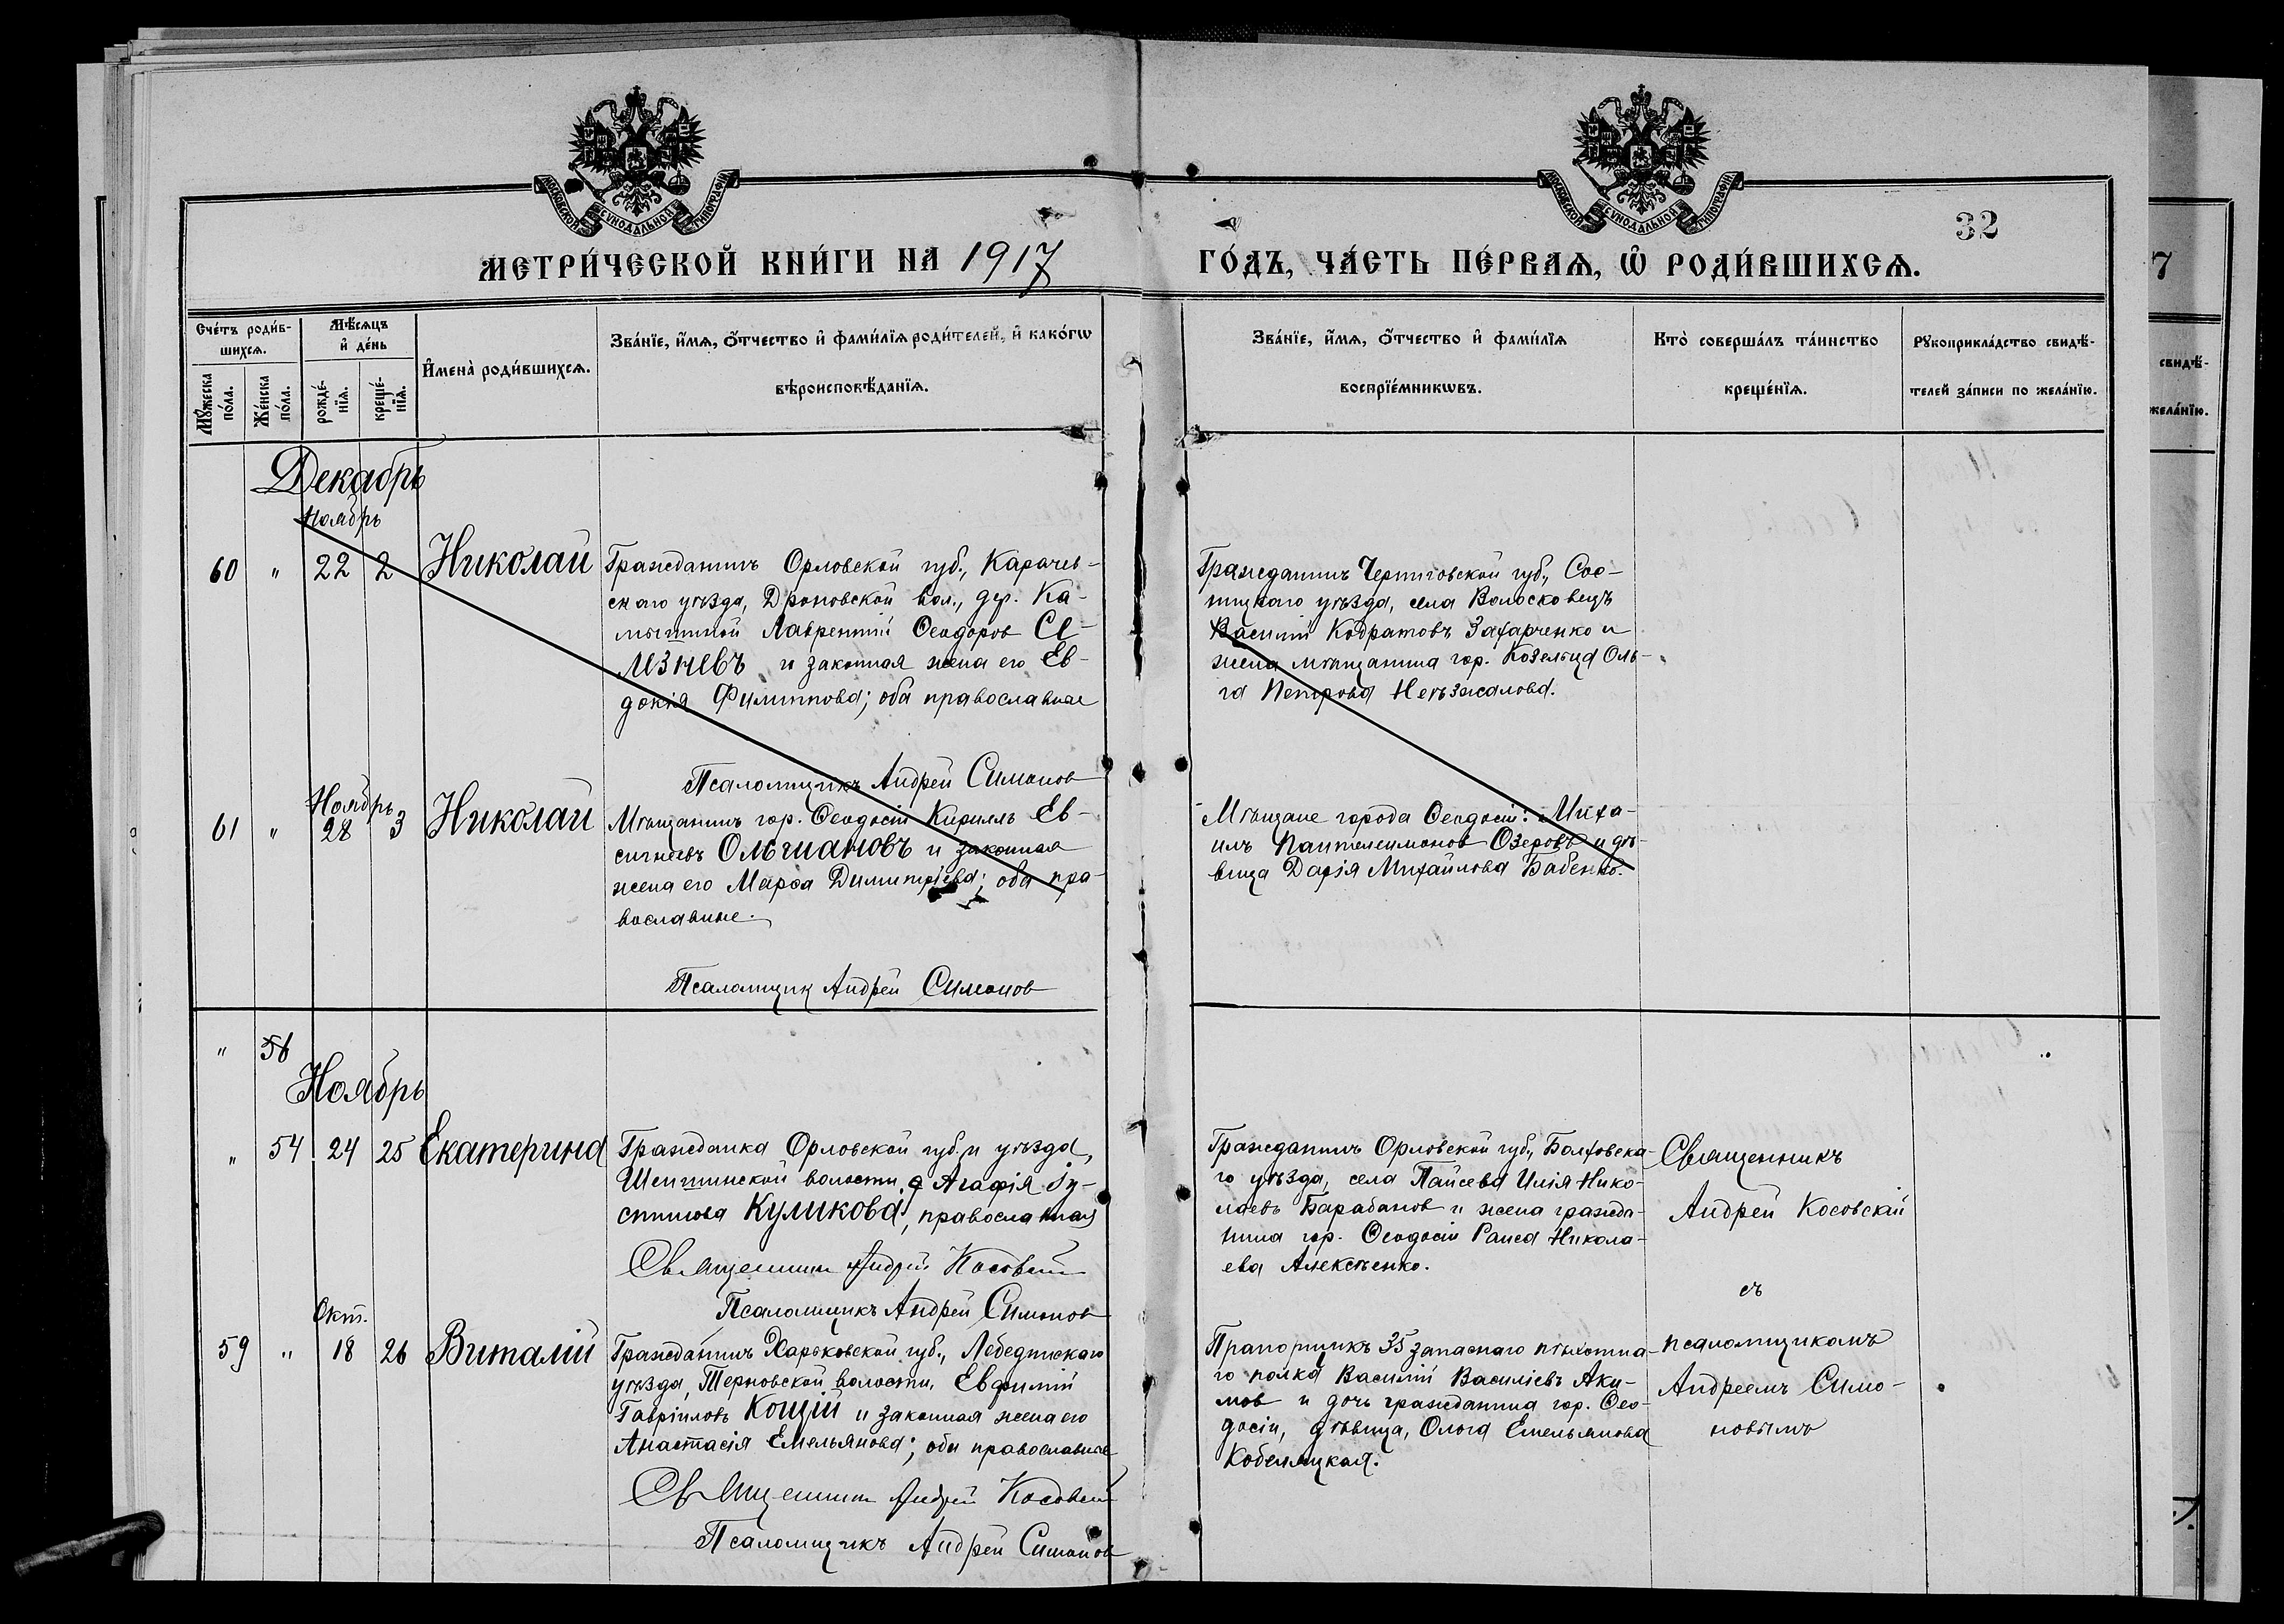 МОСКОВСКОЙ СѴНОДАЛЬНОЙ ТИПОГРАФІИ
МОСКОВСКОЙ СѴНОДАЛЬНОЙ ТИПОГРАФІИ
32
МЕТРИ́ЧЕСКОЙ КНИ́ГИ НА 1917
ГО́ДЪ, ЧА́СТЬ ПЕ́РВАѦ, Ѡ҆ РОДИ́ВШИХСѦ.
7
Сче́тъ роди́в-
шихсѧ.
Мꙋ́жеска
по́ла.
Же́нска
по́ла.
Мѣ́сѧцъ
и҆ де́нь
рожде́-
нїѧ.
креще́-
нїѧ.
И҆мена̀ роди́вшихсѧ.
Зва́нїе, и҆́мѧ, ѻ҆́тчество и҆ фами́лїѧ роди́телей, и҆ како́гѡ
вѣроисповѣ́данїѧ.
Зва́нїе, и҆́мѧ, ѻ҆́тчество и҆ фами́лїѧ
воспрїе́мникѡвъ.
Кто̀ соверша́лъ та́инство
креще́нїѧ.
Рꙋкоприкла́дство свидѣ́-
телей за́писи по жела́нїю.
свидѣ́-
жела́нїю.
Декабрь
Ноябрь
60 " 22 2 Николай
Гражданинъ Орловской губ., Карачев-
скаго уѣзда, Дроновской вол., дер. Ка-
мышной Лаврентій Ѳеодоров Се-
лезневъ и законная жена его Ев-
докія Филиппова; оба православные
Псаломщикъ Андрей Симонов
Гражданинъ Черниговской губ., Сос-
ницкаго уѣзда, села Волосковецъ
Василій Кодратовъ Захарченко и
жена мѣщанина гор. Козельца Оль-
га Петрова Негъзжалова.
Ноябрь
61 " 28 3 Николай
Мѣщанинъ гор. Ѳеодосіи Кириллъ Ев-
сигнеевъ Ольшановъ и законная
жена его Марѳа Димитріева; оба пра-
вославные.
Псаломщик Андрей Симонов
Мѣщане города Ѳеодосіи: Миха-
илъ Пантелеимонов Озеровъ и дѣ-
вица Дарія Михайлова Бабенко.
" 56
Ноябрь
" 54 24 25 Екатерина
Гражданка Орловской губ. и уѣзда,
волости, Агафія Іу-
стинова Куликова, православная
Священник Андрей Косовскій
Псаломщикъ Андрей Симонов
Гражданинъ Орловской губ., Болховска-
го уѣзда, села Паисева Илія Нико-
лаевъ Барабанов и жена гражда-
нина гор. Ѳеодосіи Раиса Никола-
ева Алексѣенко.
Священникъ
Андрей Косовскій
съ
псаломщикомъ
Андреемъ Симо-
новымъ
Окт.
59 " 18 26 Виталій
Гражданинъ Харьковской губ., Лебединскаго
уѣзда, Терновской волости, Евфимій
Гавріиловъ Кощій и законная жена его
Анастасія Емельянова; оба православные
Священник Андрей Косовскій
Псаломщикъ Андрей Симонов
Прапорщикъ 35 запаснаго пѣхотна-
го полка Василій Василіевъ Аки-
мов и дочь гражданина гор. Ѳео-
досіи, дѣвица, Ольга Емельянова
Кобеляцкая.